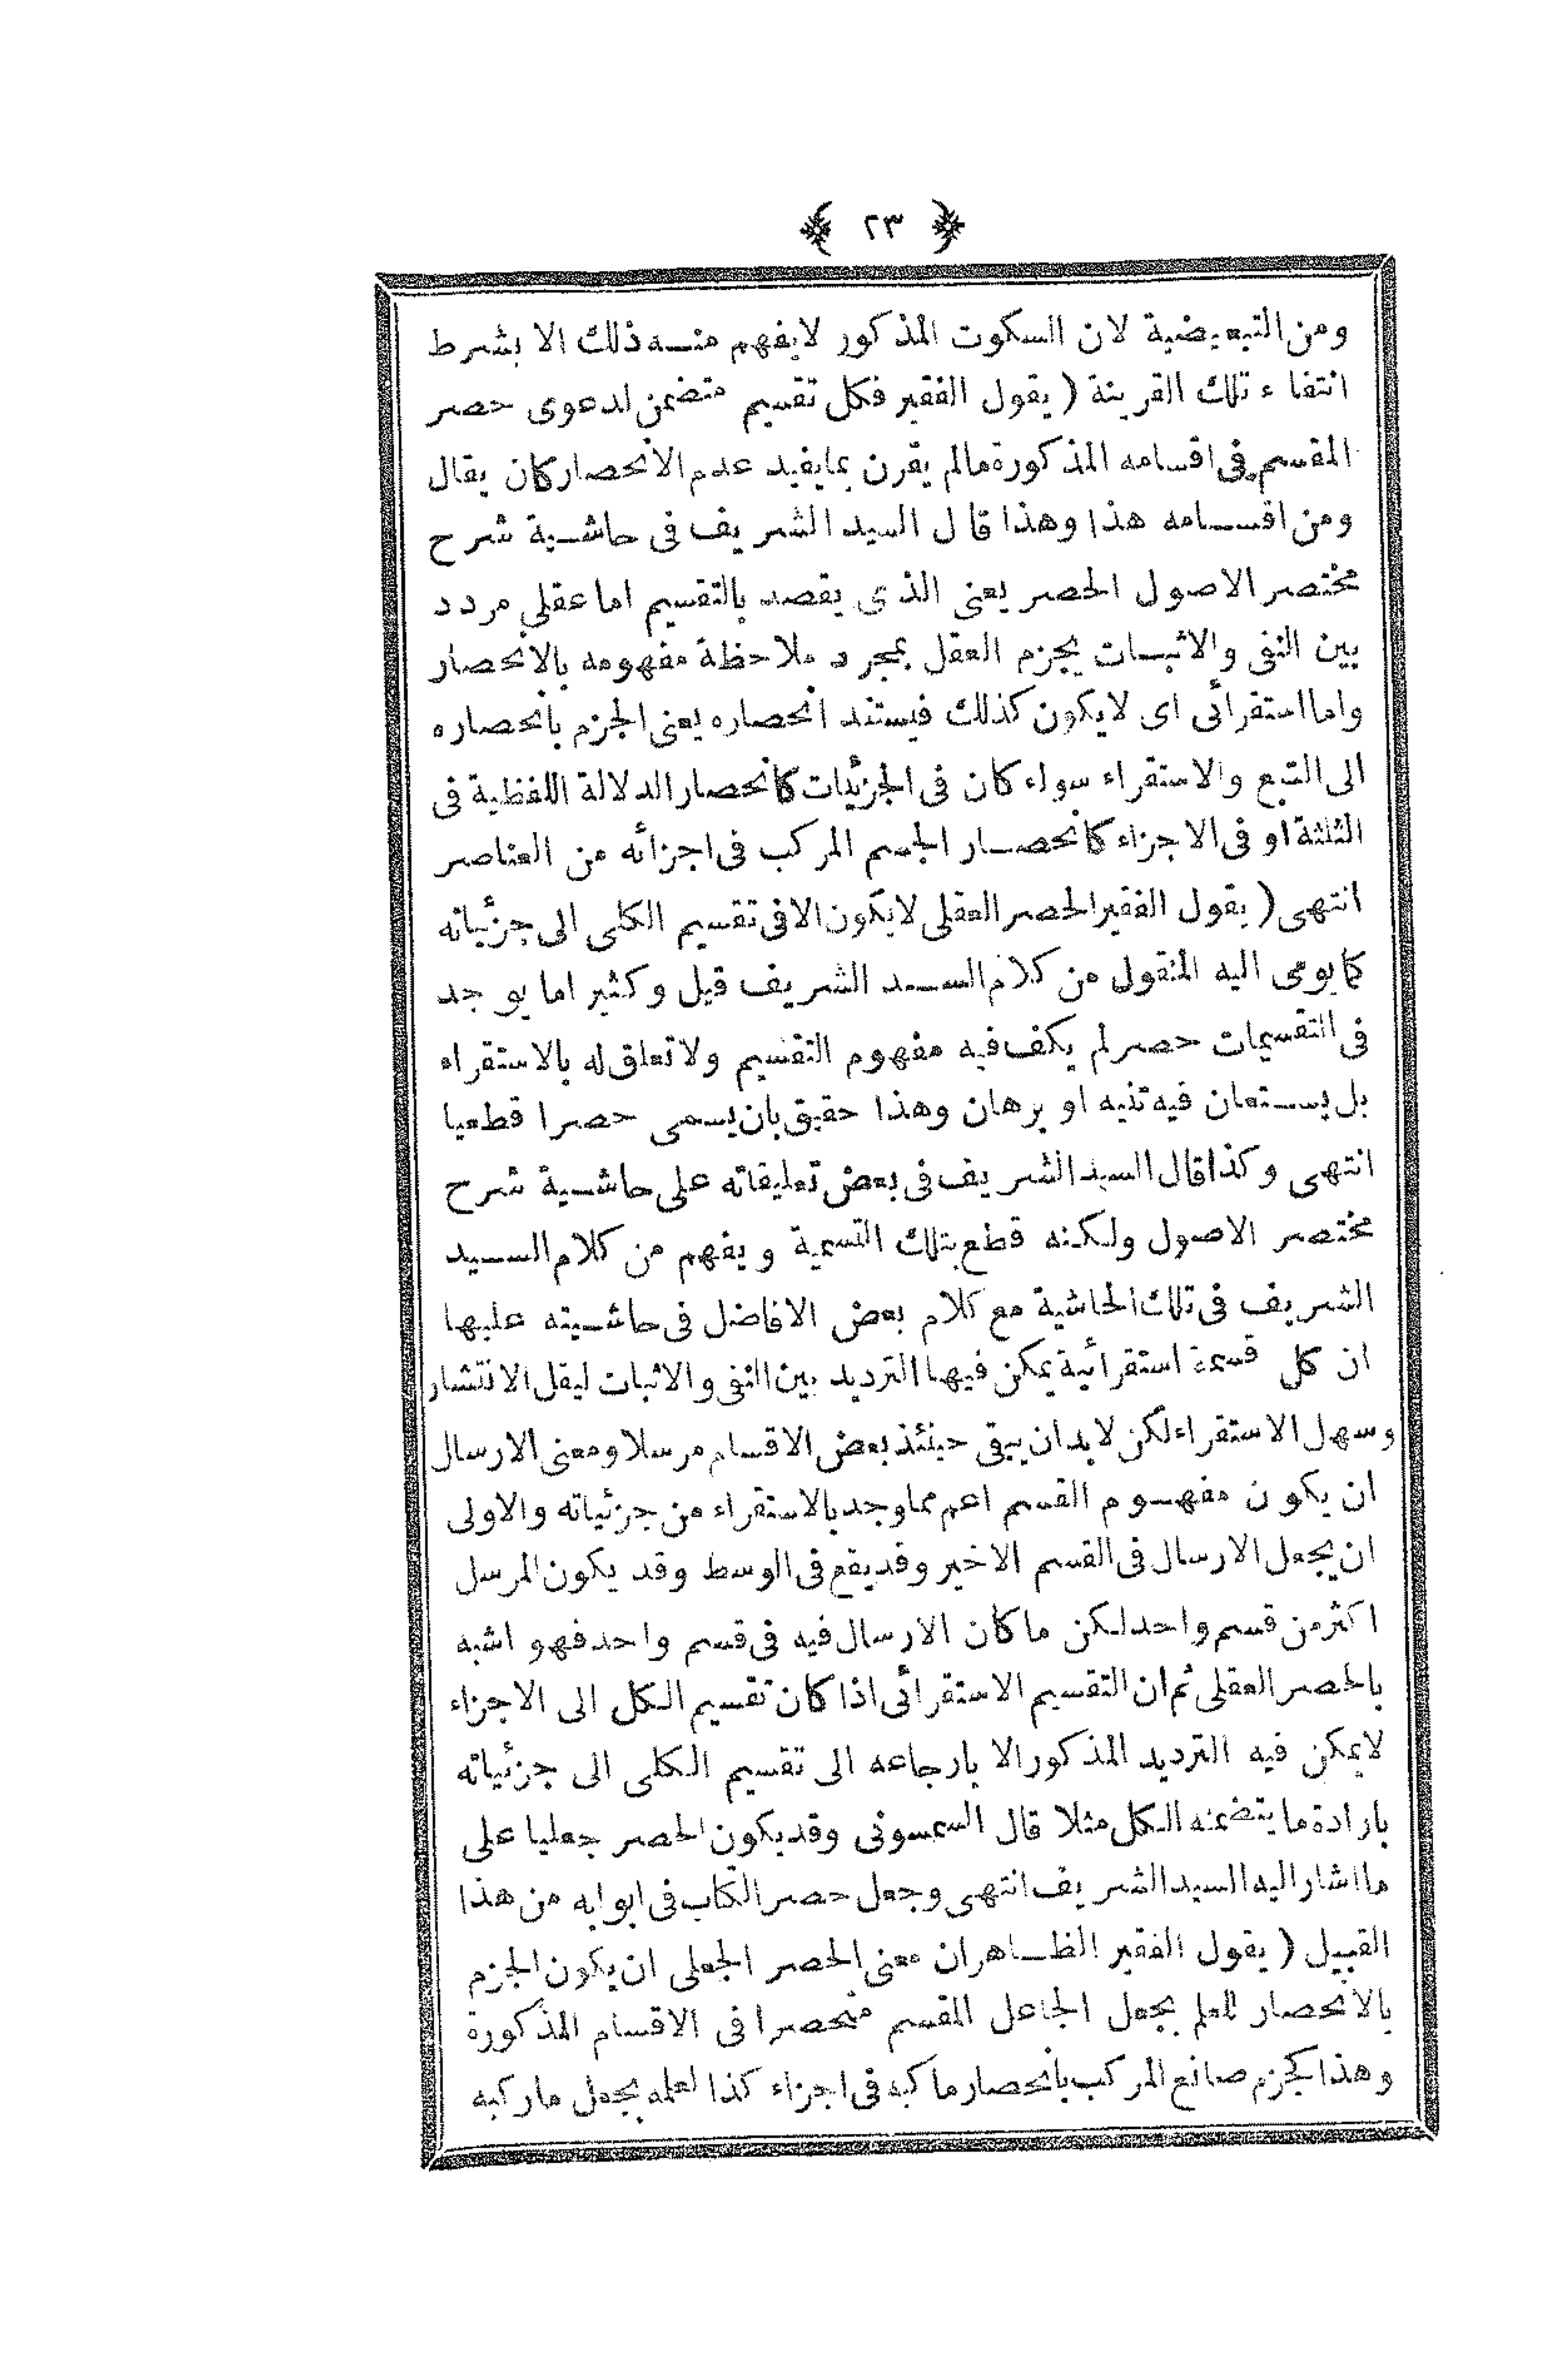 ﴿ ٢٣ ﴾
ومن التبعيضية لان السكوت المذكور لايفهم منه ذلك الا بشرط
انتفاء تلك القرينة ( يقول الفقير فكل تقسيم متضمن لدعوى حصر
المقسم فى اقسامه المذكورة مالم يقرن بمايفيد عدم الانحصار كان يقال
ومن اقسامه هذا وهذا قال السيد الشريف فى حاشية شرح
مختصر الاصول الحصر يعنى الذى يقصد بالتقسيم اما عقلى مردد
بين النفى والاثبات يجزم العقل بمجرد ملاحظة مفهومه بالانحصار
واما استقرائى اى لايكون كذلك فيستند انحصاره يعنى الجزم بانحصاره
الى التتبع والاستقراء سواء كان فى الجزئيات كانحصار الدلالة اللفظية فى
الثلثة او فى الاجزاء كانحصار الجسم المركب فى اجزائه من العناصر
انتهى ( يقول الفقير الحصر العقلى لايكون الا فى تقسيم الكلى الى جزئياته
كما يومى اليه المنقول من كلام السيد الشريف قيل وكثير اما يوجد
فى التقسيمات حصر لم يكف فيه مفهوم التقسيم ولا تعلق له بالاستقراء
بل يستعان فيه تنبيه او برهان وهذا حقيق بان يسمى حصرا قطعيا
انتهى وكذا قال السيد الشريف فى بعض تعليقاته على حاشية شرح
مختصر الاصول ولكنه قطع بتلك التسمية ويفهم من كلام السيد
الشريف فى تلك الحاشية مع كلام بعض الافاضل فى حاشيته عليها
ان كل قسمة استقرائية يمكن فيها الترديد بين النفى والاثبات ليقل الانتشار
وسهل الاستقراء لكن لابد ان يبقى حينئذ بعض الاقسام مرسلا ومعنى الارسال
ان يكون مفهوم القسم اعم مما وجد بالاستقراء من جزئياته والاولى
ان يجعل الارسال فى القسم الاخير وقديقع فى الوسط وقد يكون المرسل
اكثر من قسم واحد لكن ماكان الارسال فيه فى قسم واحد فهو اشبه
بالحصر العقلى ثم ان التقسيم الاستقرائى اذا كان تقسيم الكل الى الاجزاء
لايمكن فيه الترديد المذكور الا بارجاعه الى تقسيم الكلى الى جزئياته
بارادة ما يتضمنه الكل مثلا قال السمسونى وقد يكون الحصر جعليا على
ما اشار اليه السيد الشريف انتهى وجعل حصر الكتاب فى ابوابه من هذا
القبيل ( يقول الفقير الظاهر ان معنى الحصر الجعلى ان يكون الجزم
بالانحصار للعلم بجعل الجاعل المقسم منحصرا فى الاقسام المذكورة
وهذا كجزم صانع المركب بانحصار ماكبه فى اجزاء كذا لعلمه بجعل ماركبه